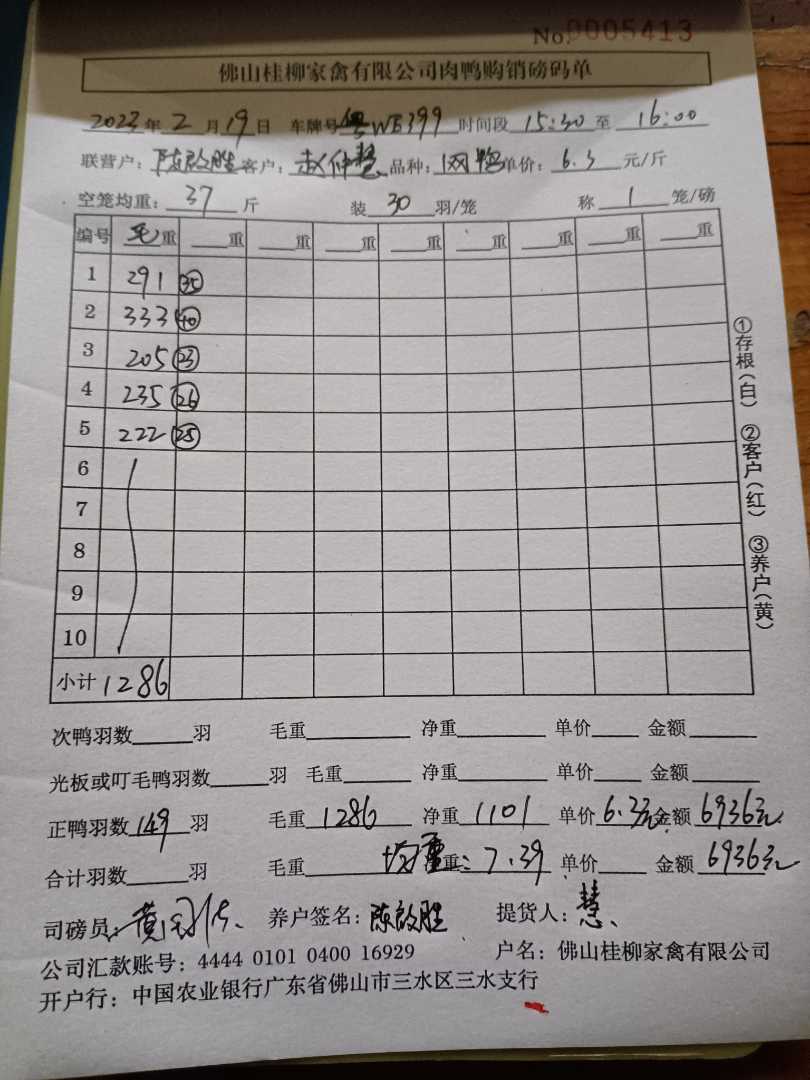 No.0005413
佛山桂柳家禽有限公司肉鸭购销磅码单
2023年2月19日 车牌号粤WB399 时间段15:30至16:00
联营户：陈啟胜 客户：赵仲慧 品种：网鸭 单价：6.3元/斤
空笼均重：37斤 装30羽/笼 称1笼/磅
编号 毛重 重 重 重 重 重 重 重 重
1 291 35
2 333 40
3 205 23
4 235 26
5 222 25
6
7
8
9
10
小计 1286
①存根(白) ②客户(红) ③养户(黄)
次鸭羽数 羽 毛重 净重 单价 金额
光板或叮毛鸭羽数 羽 毛重 净重 单价 金额
正鸭羽数149羽 毛重1286 净重1101 单价6.3元 金额6936元
合计羽数 羽 毛重 净重 均重：7.39 单价 金额6936元
司磅员：黄 养户签名：陈啟胜 提货人：慧
公司汇款账号：4444 0101 0400 16929 户名：佛山桂柳家禽有限公司
开户行：中国农业银行广东省佛山市三水区三水支行